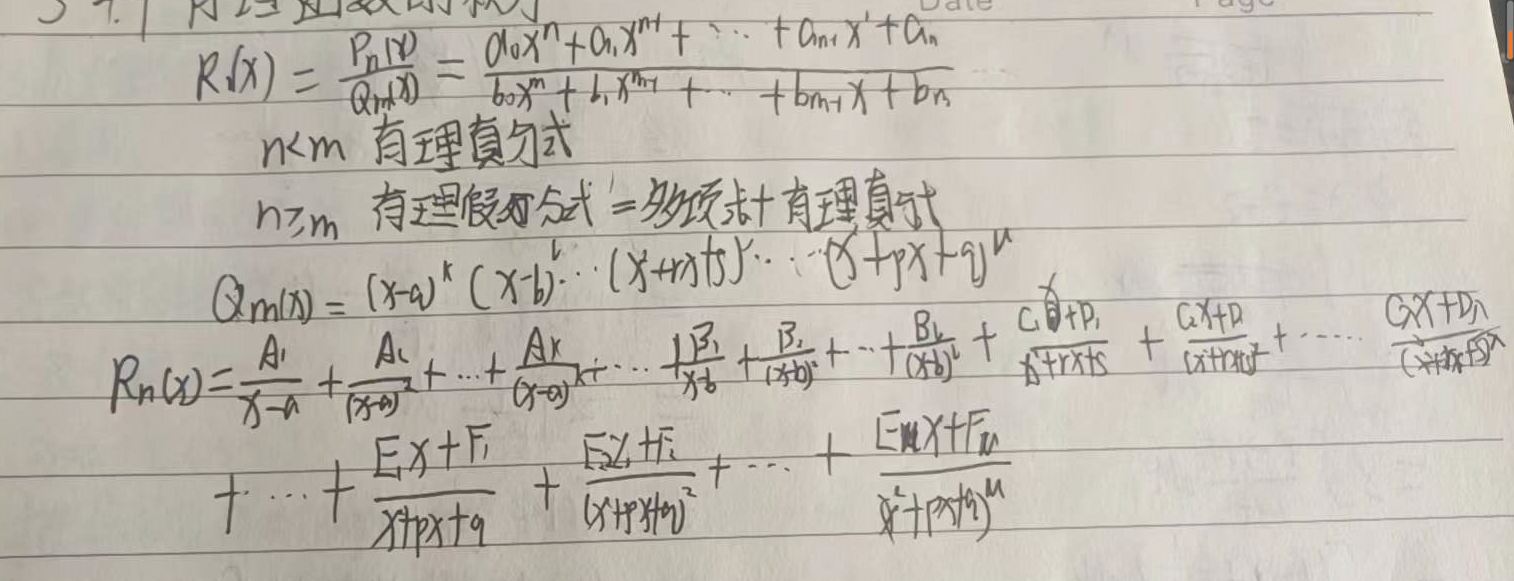 5.4.1 有理函数的积分
Date Page
R(x) = Pn(x)/Qm(x) = (a₀xⁿ+a₁xⁿ⁻¹+ ⋯ +aₙ₋₁x¹+aₙ)/(b₀xᵐ+b₁xᵐ⁻¹+ ⋯ +bₘ₋₁x+bₘ)
n<m 有理真分式
n≥m 有理假分式=多项式+有理真分式
Qm(x) = (x-a)ᵏ(x-b)ᴸ⋯(x²+rx+s)^λ⋯⋯(x²+px+q)^μ
Rn(x)=A₁/(x-a) + A₂/(x-a)² +⋯+ Aₖ/(x-a)ᵏ+⋯+B₁/(x-b) + B₂/(x-b)² +⋯+ B_L/(x-b)ᴸ + (C₁x+D₁)/(x²+rx+s) + (C₂x+D₂)/(x²+rx+s)² +⋯⋯ (C_λx+D_λ)/(x²+rx+s)^λ
+⋯+ (E₁x+F₁)/(x²+px+q) + (E₂x+F₂)/(x²+px+q)² +⋯+ (E_μx+F_μ)/(x²+px+q)^μ